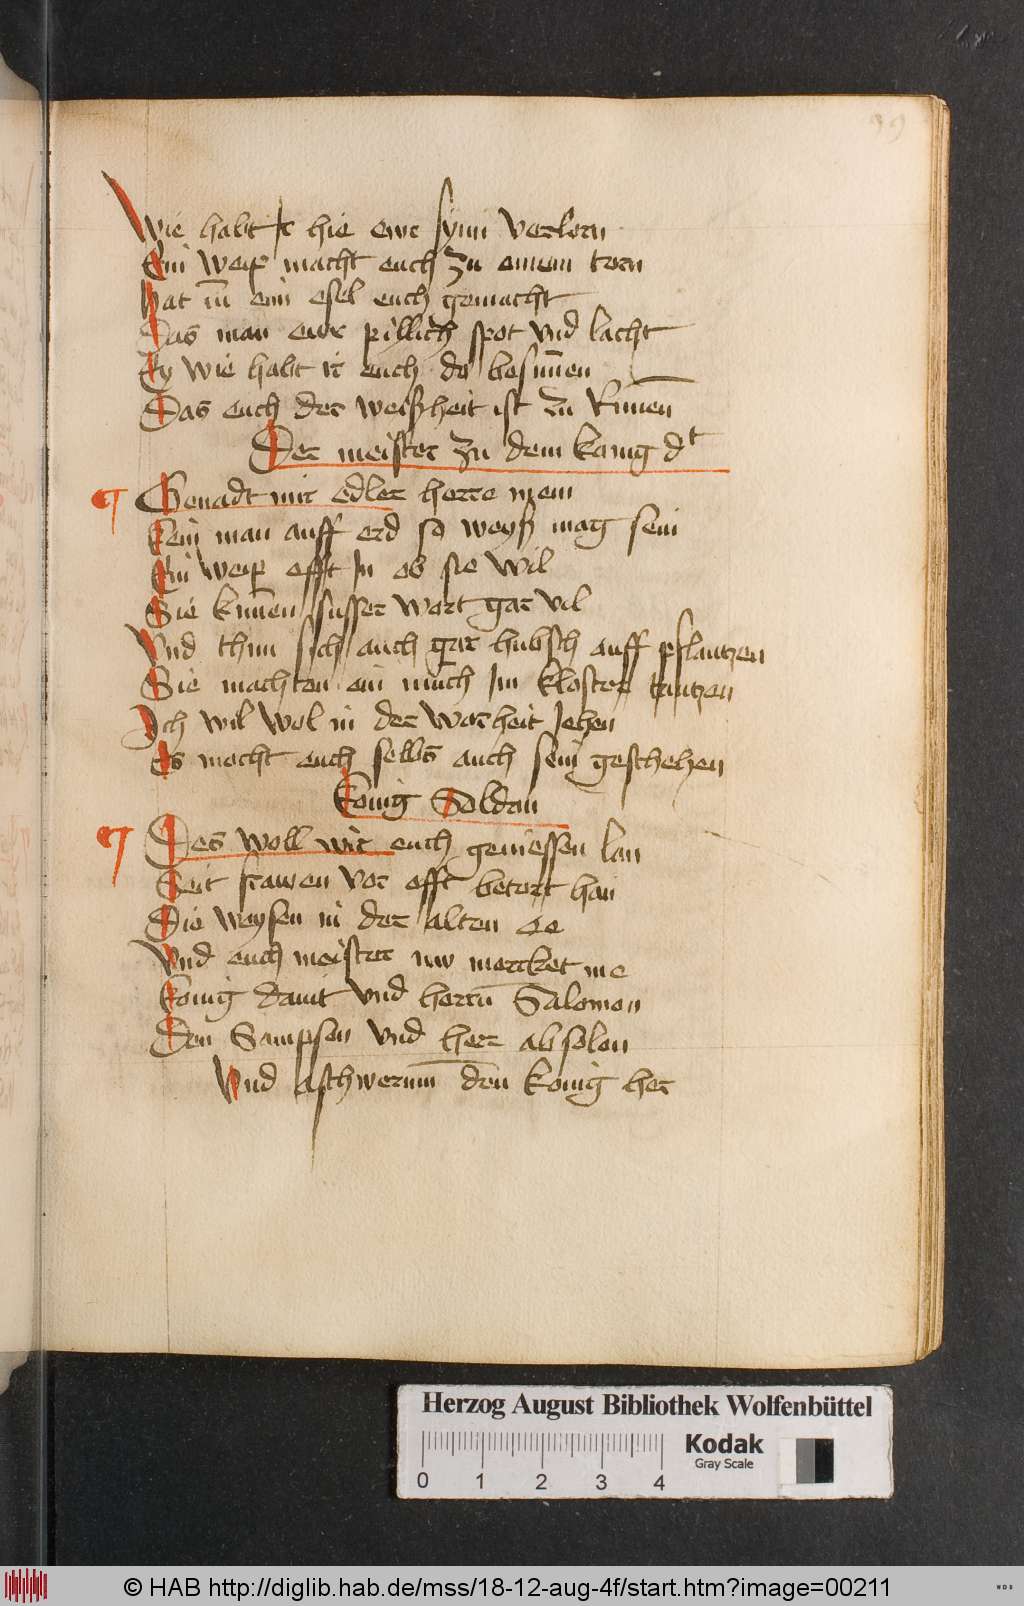 39
Wie habt ir hie ewr synn verlorn
Ein weip macht euch zu einem torn
Hat nw̄ ein esel euch gemacht
Das man ewr pillich spot vnd lacht
Ey wie habt ir euch do besūnen
Das euch der weißheit ist zu Rīnnen
Der meister zu dem konig dt
Genadt mir edler herre mein
Kein man auff erd so weyß mag sein
Ein weip efft In ob sie wil
Sie kūnnen susser wort gar vil
Vnd thun sich auch gar hubsch auff pflantzen
Sie machten ein munch Im kloster tantzen
Ich wil wol in der warheit Jehen
Es mocht euch selbs auch sein geschehen
Konig Soldan
Des woll wir euch geniessen lan
Seit frawen vor offt betort han
Die weysen in der alten ee
Vnd euch meister nw mercket me
Konig dauit vnd herrn Salomon
Den Sampson vnd herr absolon
Vnd aschwerum den konig her
Herzog August Bibliothek Wolfenbüttel
0 1 2 3 4
Kodak
Gray Scale
© HAB http://diglib.hab.de/mss/18-12-aug-4f/start.htm?image=00211